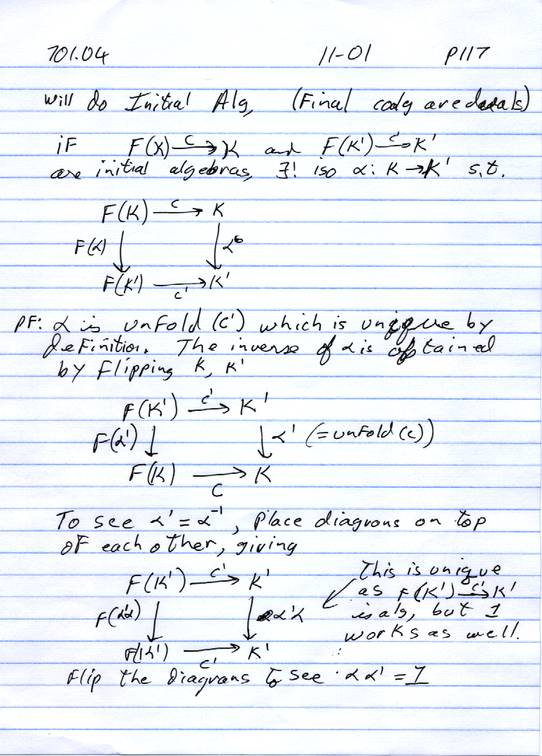 701.04 11-01 P117
will do Initial Alg, (Final coalg are duals)
if F(K) →c K and F(K') →c' K'
are initial algebras, ∃! iso α: K → K' s.t.
F(K) →c K
F(α) ↓ ↓ α
F(K') →c' K'
PF: α is unfold (c') which is unique by
definition. The inverse of α is obtained
by flipping K, K'
F(K') →c' K'
F(α') ↓ ↓ α' (= unfold (c))
F(K) →c K
To see α' = α⁻¹, place diagrams on top
of each other, giving
F(K') →c' K' This is unique
as F(K') →c' K'
F(αα') ↓ ↓ α'α is alg, but 1
works as well.
F(K') →c' K'
Flip the diagrams to see αα' = 1